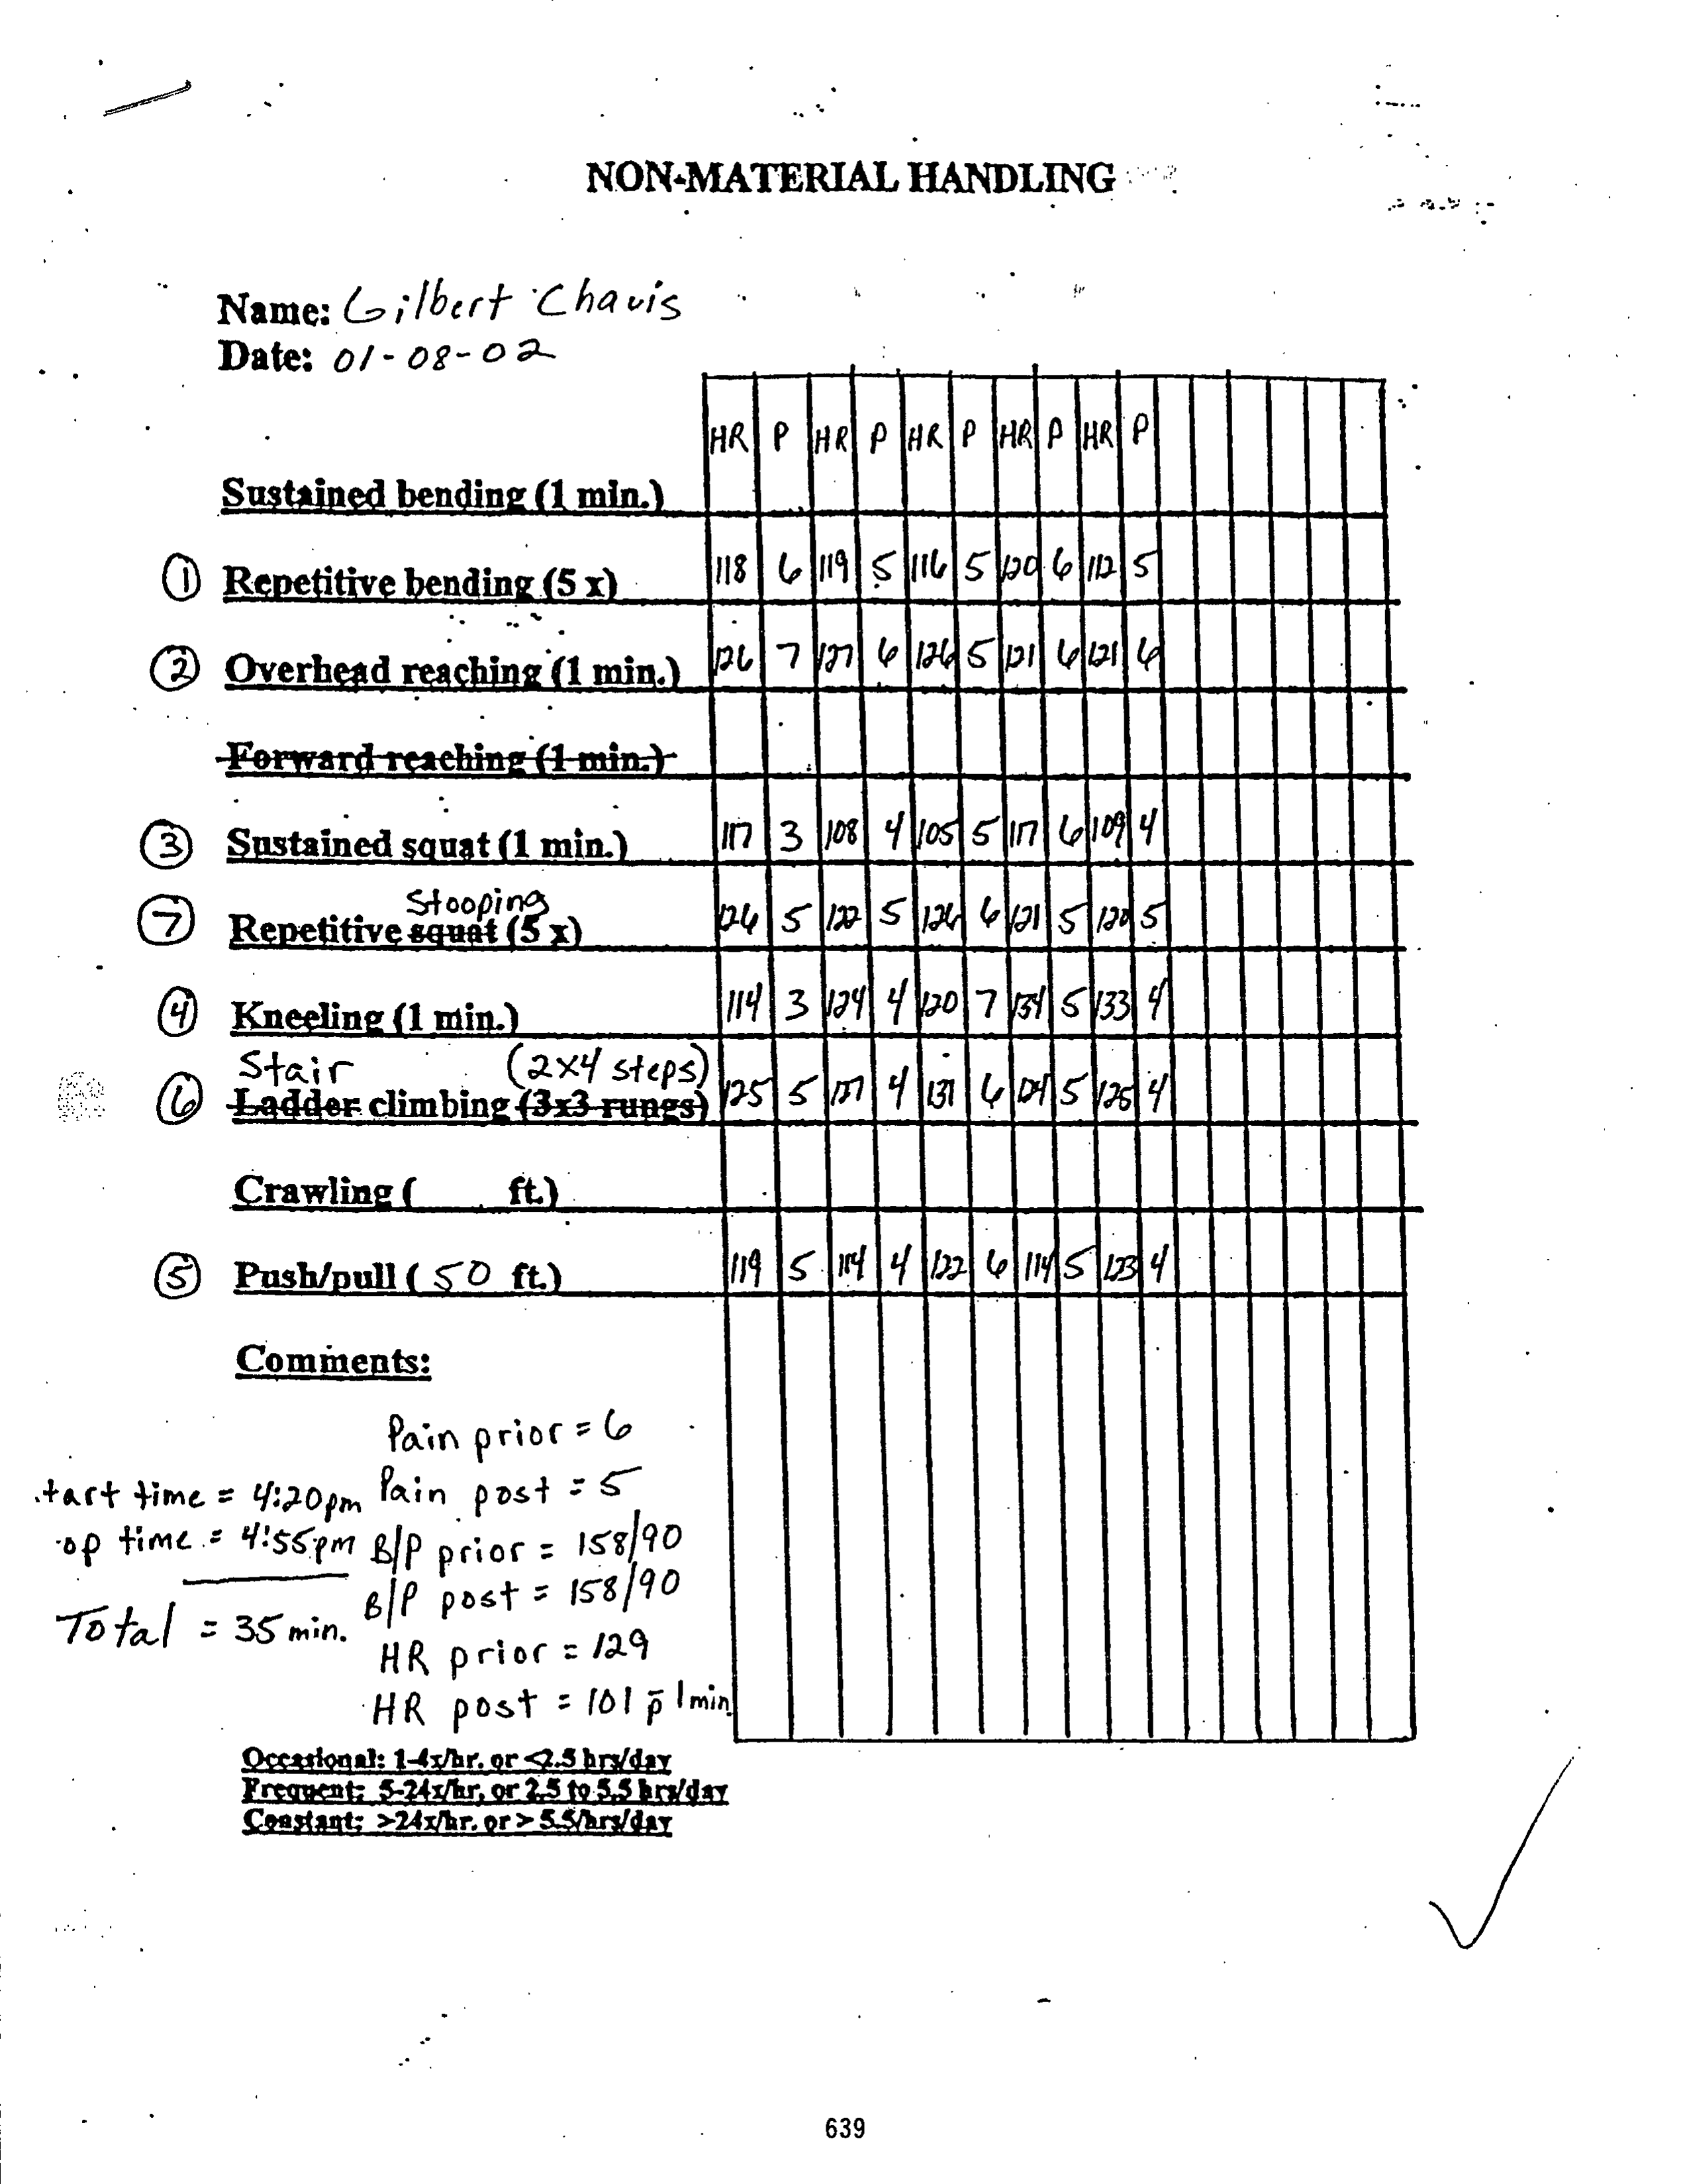 NON-MATERIAL HANDLING
Name: Gilbert Chavis
Date: 01-08-02
HR P HR P HR P HR P HR P
Sustained bending (1 min.)
① Repetitive bending (5 x) 118 6 119 5 116 5 120 6 112 5
② Overhead reaching (1 min.) 126 7 127 6 126 5 121 6 121 6
Forward reaching (1 min.)
③ Sustained squat (1 min.) 117 3 108 4 105 5 117 6 109 4
Stooping
⑦ Repetitive squat (5 x) 126 5 122 5 126 6 121 5 120 5
④ Kneeling (1 min.) 114 3 124 4 120 7 134 5 133 4
Stair (2x4 steps)
⑥ Ladder climbing (3x3 rungs) 125 5 4 131 6 124 5 4
Crawling ( ft.)
⑤ Push/pull ( 50 ft.) 119 5 114 4 122 6 114 5 123 4
Comments:
Pain prior = 6
tart time = 4:20pm Pain post = 5
op time = 4:55pm B/P prior = 158/90
B/P post = 158/90
Total = 35 min.
HR prior = 129
HR post = 101 p̄ 1min.
Occasional: 1-4x/hr. or <2.5 hrs/day
Frequent: 5-24x/hr, or 2.5 to 5.5 hrs/day
Constant: >24x/hr. or > 5.5/hrs/day
639